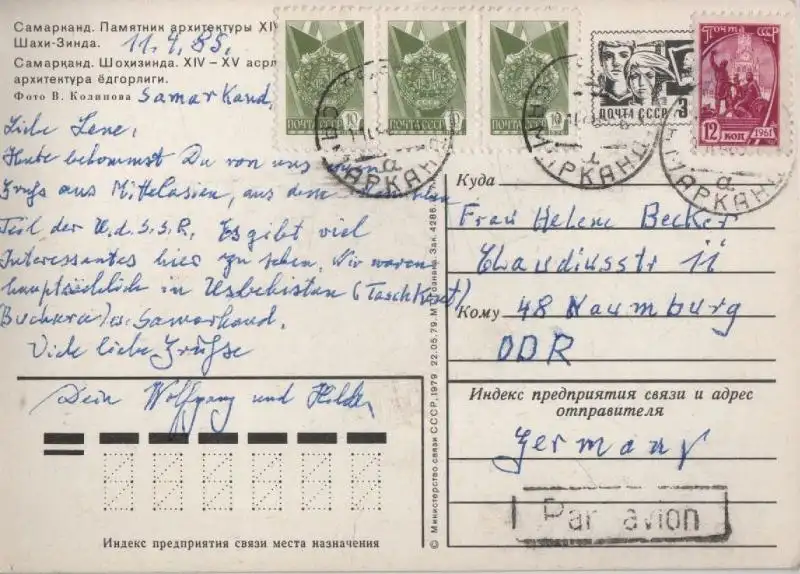 Самарканд. Памятник архитектуры XI
Шахи-Зинда.
11.4.85,
Самарқанд. Шохизинда. XIV – XV асрл
архитектура ёдгорлиги.
Фото В. Колинова
Samarkand,
Liebe Lene,
Heute bekommst Du von uns
Gruß aus Mittelasien, aus dem
Teil der U.d.S.S.R. Es gibt viel
Interessantes hier zu sehen. Wir waren
hauptsächlich in Usbekistan (Taschkent)
(Buchara) u. Samarkand.
Viele liebe Grüße
Dein Wolfgang und
Индекс предприятия связи места назначения
© Министерство связи СССР, 1979 22.05.79. Зак. 4288.
10
10
10
ПОЧТА СССР
3
ПОЧТА СССР
12 КОП
1961
САМАРКАНД
САМАРКАНД
САМАРКАНД
Куда
Frau Helene Becker
Claudiusstr 11
Кому 48 Naumburg
DDR
Индекс предприятия связи и адрес
отправителя
Germany
Par avion